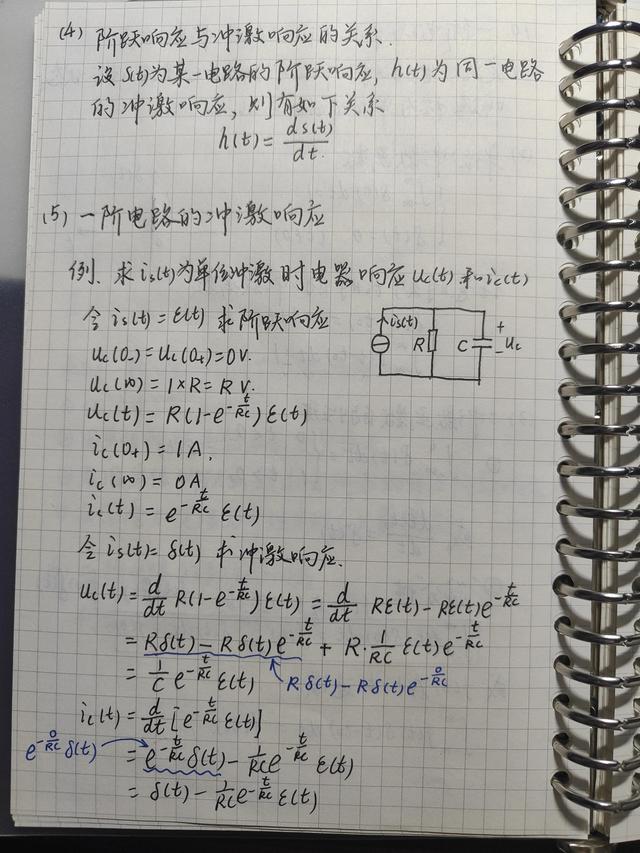 (4) 阶跃响应与冲激响应的关系.
设 s(t)为某一电路的阶跃响应, h(t)为同一电路
的冲激响应, 则有如下关系
h(t) = ds(t)/dt.
(5) 一阶电路的冲激响应
例. 求 is(t)为单位冲激时电器响应 uc(t) 和 ic(t)
令 is(t) = ε(t) 求阶跃响应
is(t) R C + uc −
uc(0-) = uc(0+) = 0V.
uc(∞) = 1×R = R V.
uc(t) = R(1-e^{-t/RC}) ε(t)
ic(0+) = 1A,
ic(∞) = 0A
ic(t) = e^{-t/RC} ε(t)
令 is(t) = δ(t) 求冲激响应.
uc(t) = d/dt R(1-e^{-t/RC}) ε(t) = d/dt Rε(t) - Rε(t)e^{-t/RC}
= Rδ(t) - Rδ(t)e^{-t/RC} + R·1/RC ε(t)e^{-t/RC}
= 1/C e^{-t/RC} ε(t) Rδ(t) - Rδ(t)e^{-0/RC}
ic(t) = d/dt [e^{-t/RC} ε(t)]
e^{-0/RC} δ(t) = e^{-t/RC} δ(t) - 1/RC e^{-t/RC} ε(t)
= δ(t) - 1/RC e^{-t/RC} ε(t)